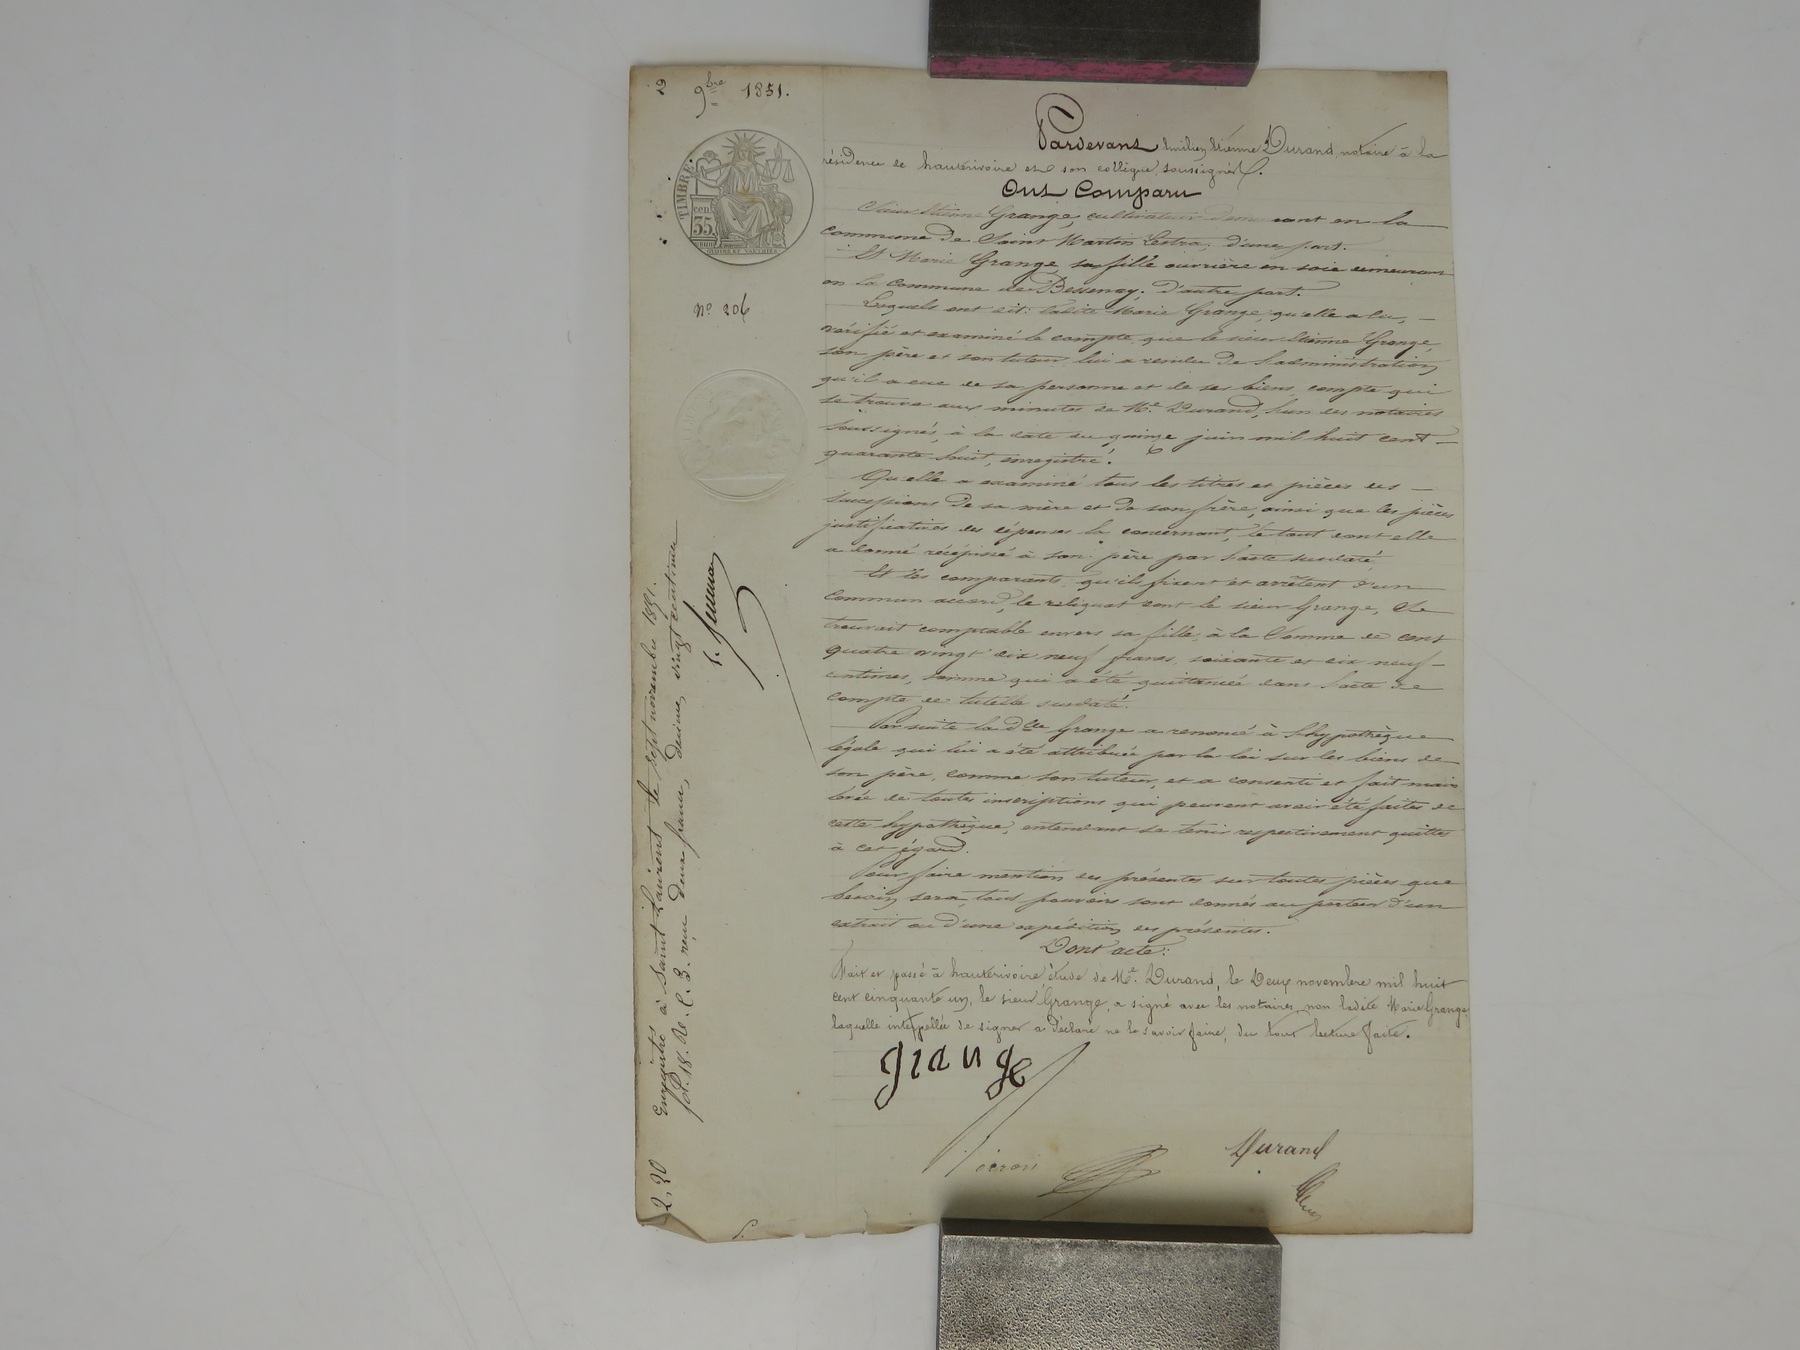 2 9bre 1851.
TIMBRE
cen.
35
N° 206
Pardevant Emilien Etienne Durand, notaire à la
résidence de hauterivoire et son collègue, soussignés.
Ont Comparu
Sieur Etienne Grange, cultivateur demeurant en la
commune de Saint Martin Lestra, d'une part.
Et Marie Grange, sa fille ouvrière en soie demeurant
en la commune de Bessenay, d'autre part.
Lesquels ont dit: ladite Marie Grange, qu'elle a lu,
vérifié et examiné le compte que le sieur Etienne Grange
son père et son tuteur lui a rendu de l'administration
qu'il a eue de sa personne et de ses biens, compte qui
se trouve aux minutes de Me Durand, l'un des notaires
soussignés, à la date du quinze juin mil huit cent
quarante huit, enregistré.
Qu'elle a examiné tous les titres et pièces des
successions de sa mère et de son frère, ainsi que les pièces
justificatives des dépenses la concernant, le tout dont elle
a donné récépissé à son père par l'acte susdaté.
Et les comparants, qu'ils fixent et arrêtent d'un
commun accord, le reliquat dont le sieur Grange, se
trouvait comptable envers sa fille, à la somme de cent
quatre vingt dix neuf francs, soixante et dix neuf
centimes, somme qui a été quittancée dans l'acte de
compte de tutelle susdaté.
Par suite la dlle Grange a renoncé à l'hypothèque
légale qui lui a été attribuée par la loi sur les biens de
son père, comme son tuteur, et a consenti et fait main
levée de toutes inscriptions qui peuvent avoir été faites de
cette hypothèque, entendant se tenir respectivement quittes
à cet égard.
Pour faire mention des présentes sur toutes pièces que
besoin sera, tous pouvoirs sont donnés au porteur d'un
extrait ou d'une expédition des présentes.
Dont acte:
Fait et passé à hauterivoire étude de Me Durand, le Deux novembre mil huit
cent cinquante un, le sieur Grange, a signé avec les notaires, non ladite Marie Grange,
laquelle interpellée de signer a déclaré ne le savoir faire, du tout lecture faite.
grange
Durand
Enregistré à Saint Laurent le sept novembre 1851.
fol. 18. Ro. C. 3. reçu deux francs, decime, vingt centimes
2,20